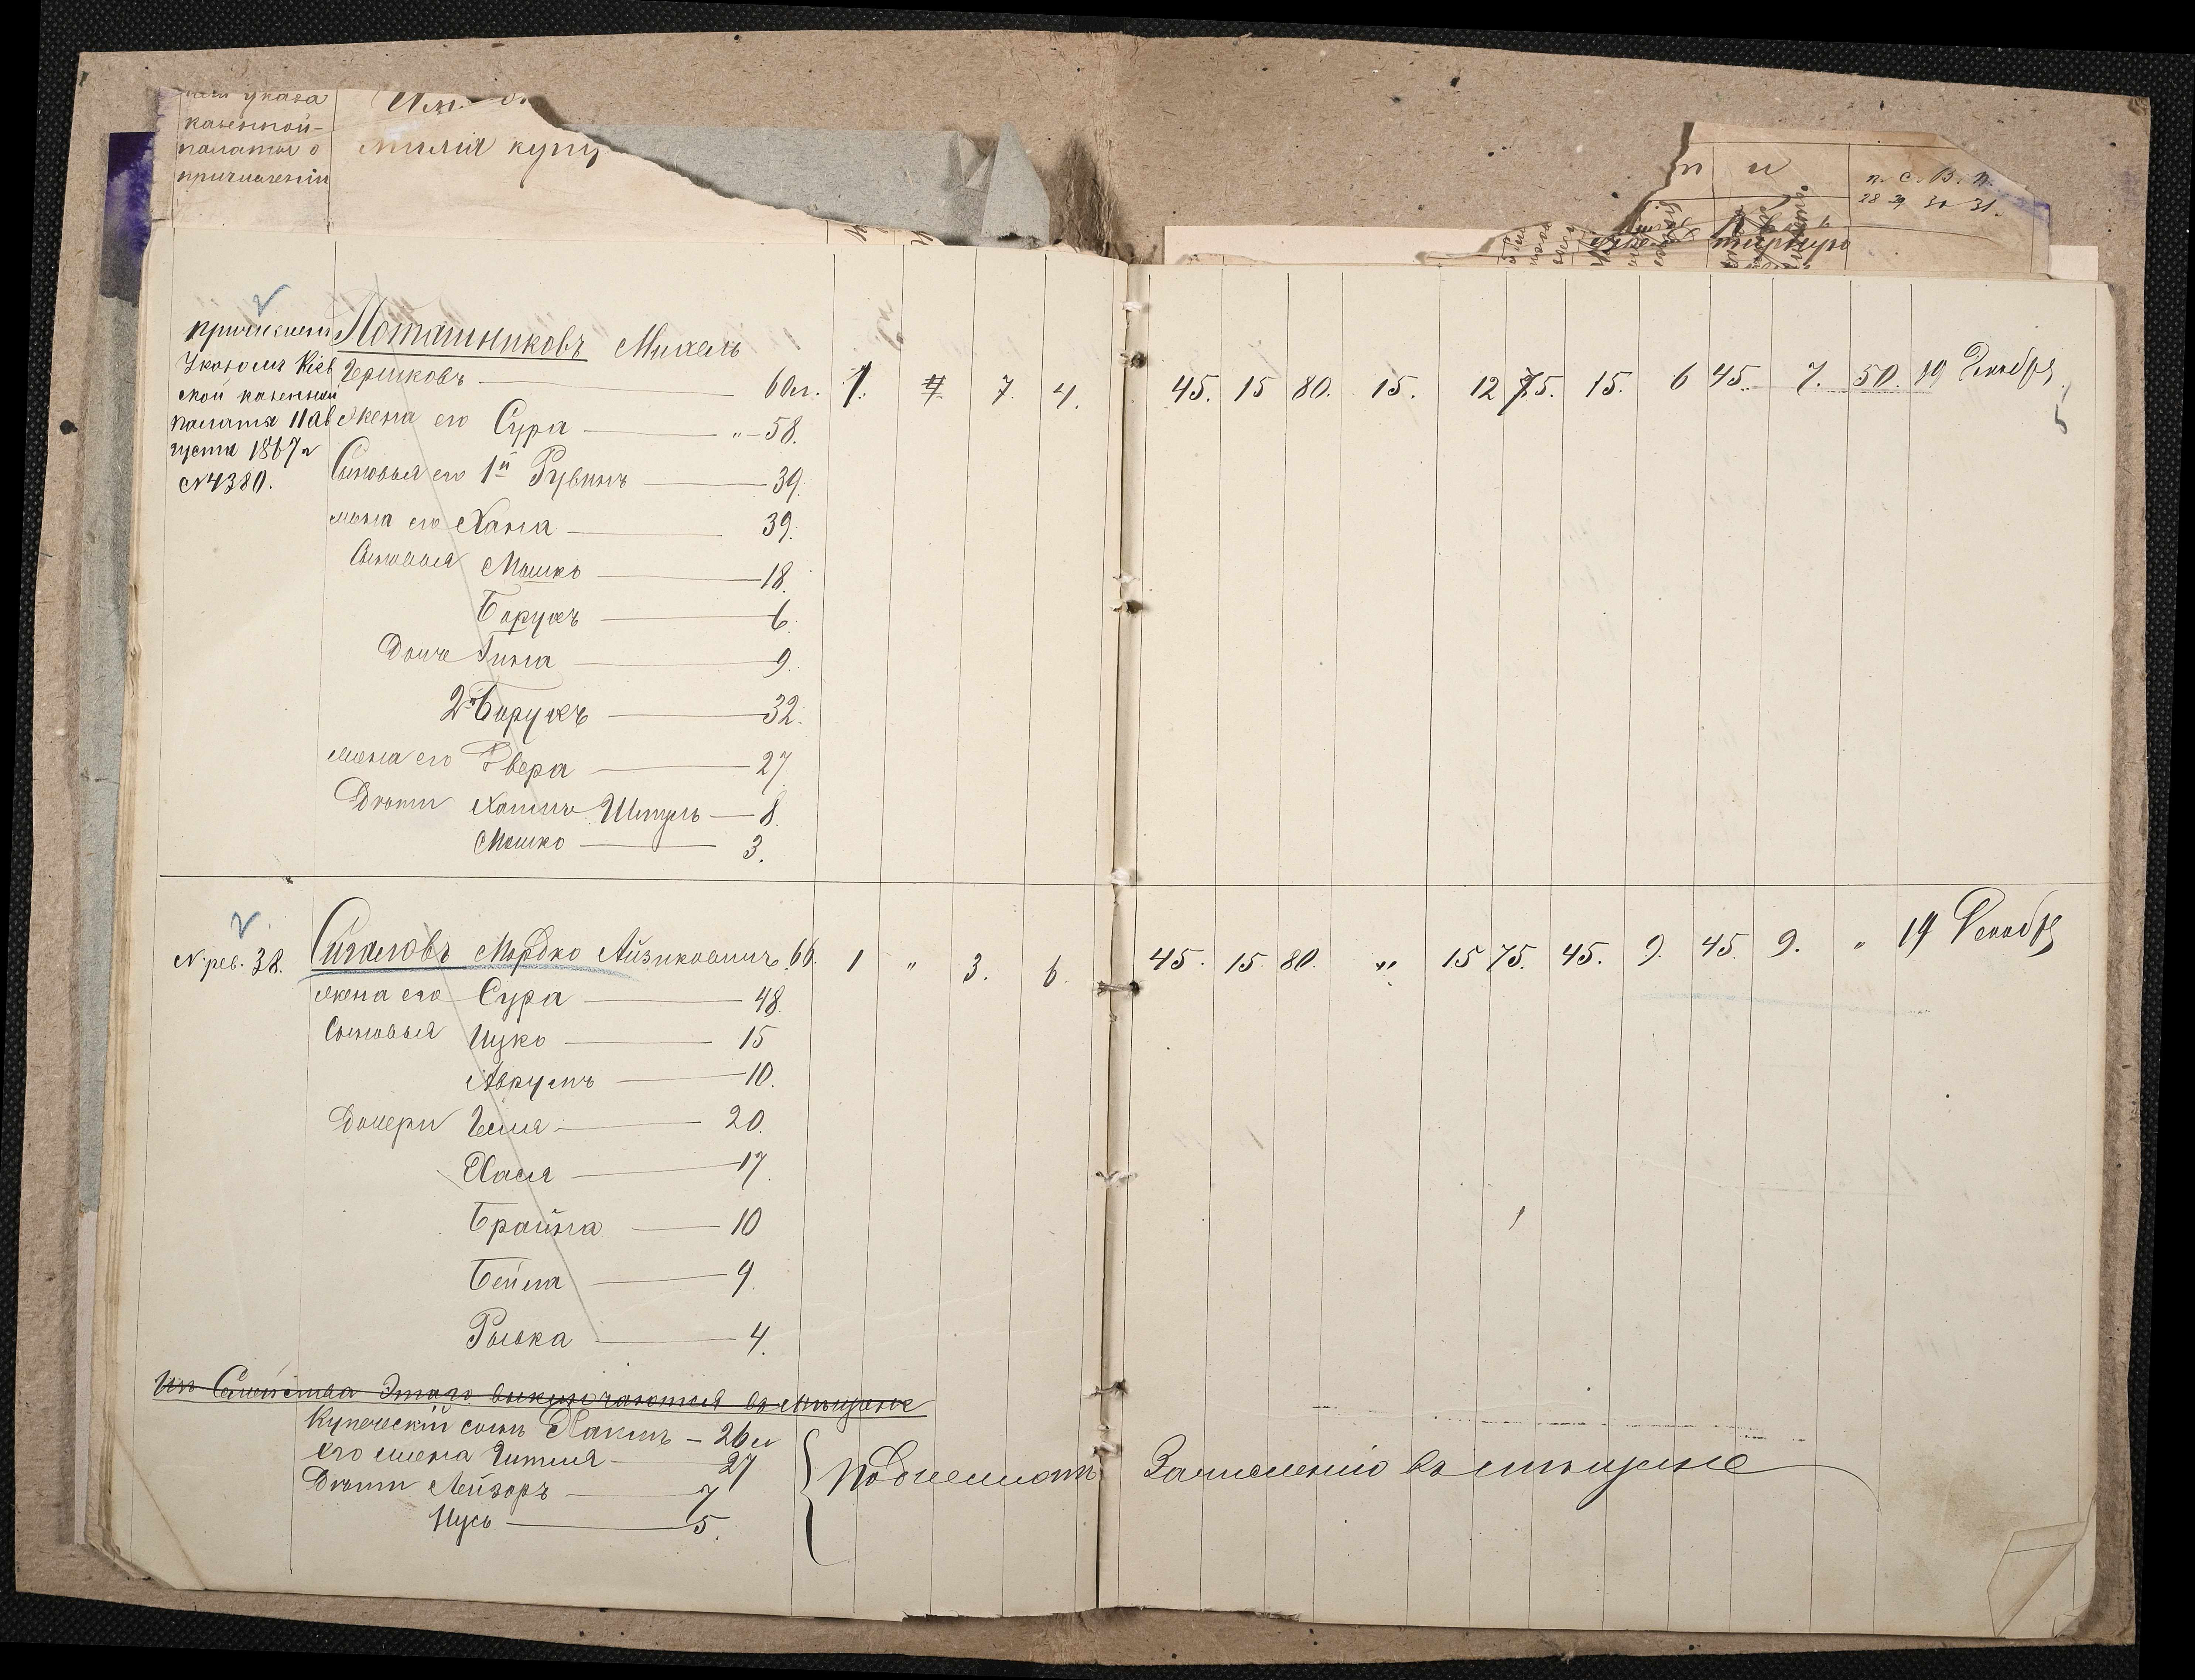 указа
казенной-
палаты о
причислении
милія купц
п и
п. С. В. п.
28 29 30 31.
причислен
Указомъ Кіев
ской казенной
палаты 11 Ав
густа 1867 г
№ 4380.
Поташниковъ Михель
Гершковъ — 60 л. 1. 7. 4. 45. 15 80. 15. 12 75. 15. 6 45. 7. 50. 19 Декабря
жена его Сура — „ — 58.
Сыновья его 1й Рувинъ — 39.
жена его Хана — 39.
Сыновья Мошко — 18.
Борухъ — 6.
Дочь Гина — 9.
2й Борухъ — 32.
жена его Двера — 27
Дѣти Хаимъ Шмуль — 8.
Мошко — 3.
5
№ рев. 38.
Сигаловъ Мордко Айзиковичъ 60. 1 „ 3. 6. 45. 15 80. „ 15 75. 45. 9. 45 9. „ 19 Декабря
жена его Сура — 48.
Сыновья Ицко — 15
Аврумъ — 10.
Дочери Геня — 20.
Хася — 17.
Брайна — 10
Бейла — 9.
Рывка — 4.
Изъ Семейства Этаго выключаются въ мѣщане
Купеческій сынъ Хаимъ — 26 л
его жена Гитля — 27
Дѣти Лейзоръ — 7
Нусь — 5.
подлежатъ Зачисленію въ мѣщане